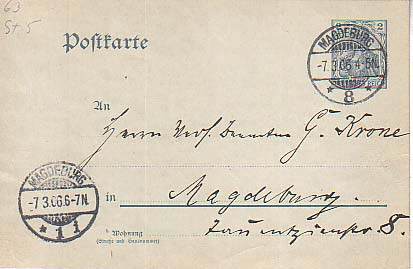 63
St 5
Postkarte
MAGDEBURG
-7.3.06.4-5N.
* 8 *
2
An
Herrn G. Krone
MAGDEBURG
-7.3.06.6-7N.
* 1 1
in Magdeburg.
Wohnung
(Straße und Hausnummer)
8.